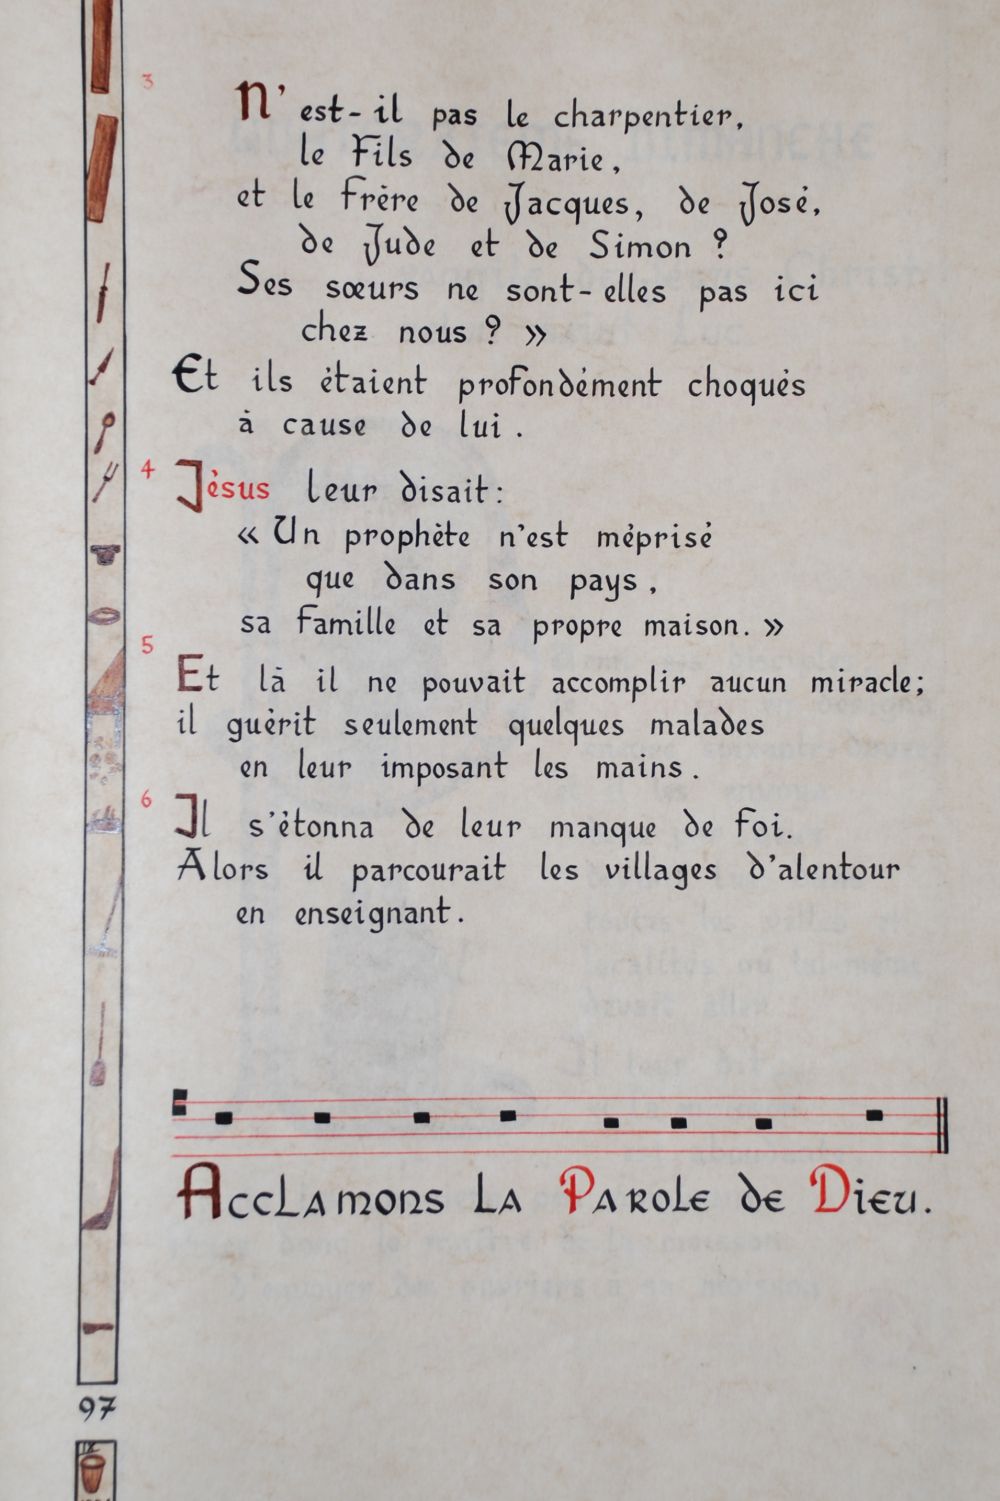 3
N'est-il pas le charpentier,
le Fils de Marie,
et le frère de Jacques, de José,
de Jude et de Simon ?
Ses sœurs ne sont-elles pas ici
chez nous ? »
Et ils étaient profondément choqués
à cause de lui .
4
Jésus leur disait :
« Un prophète n'est méprisé
que dans son pays ,
sa famille et sa propre maison. »
5
Et là il ne pouvait accomplir aucun miracle;
il guérit seulement quelques malades
en leur imposant les mains .
6
Il s'étonna de leur manque de foi.
Alors il parcourait les villages d'alentour
en enseignant .
Acclamons la Parole de Dieu.
97